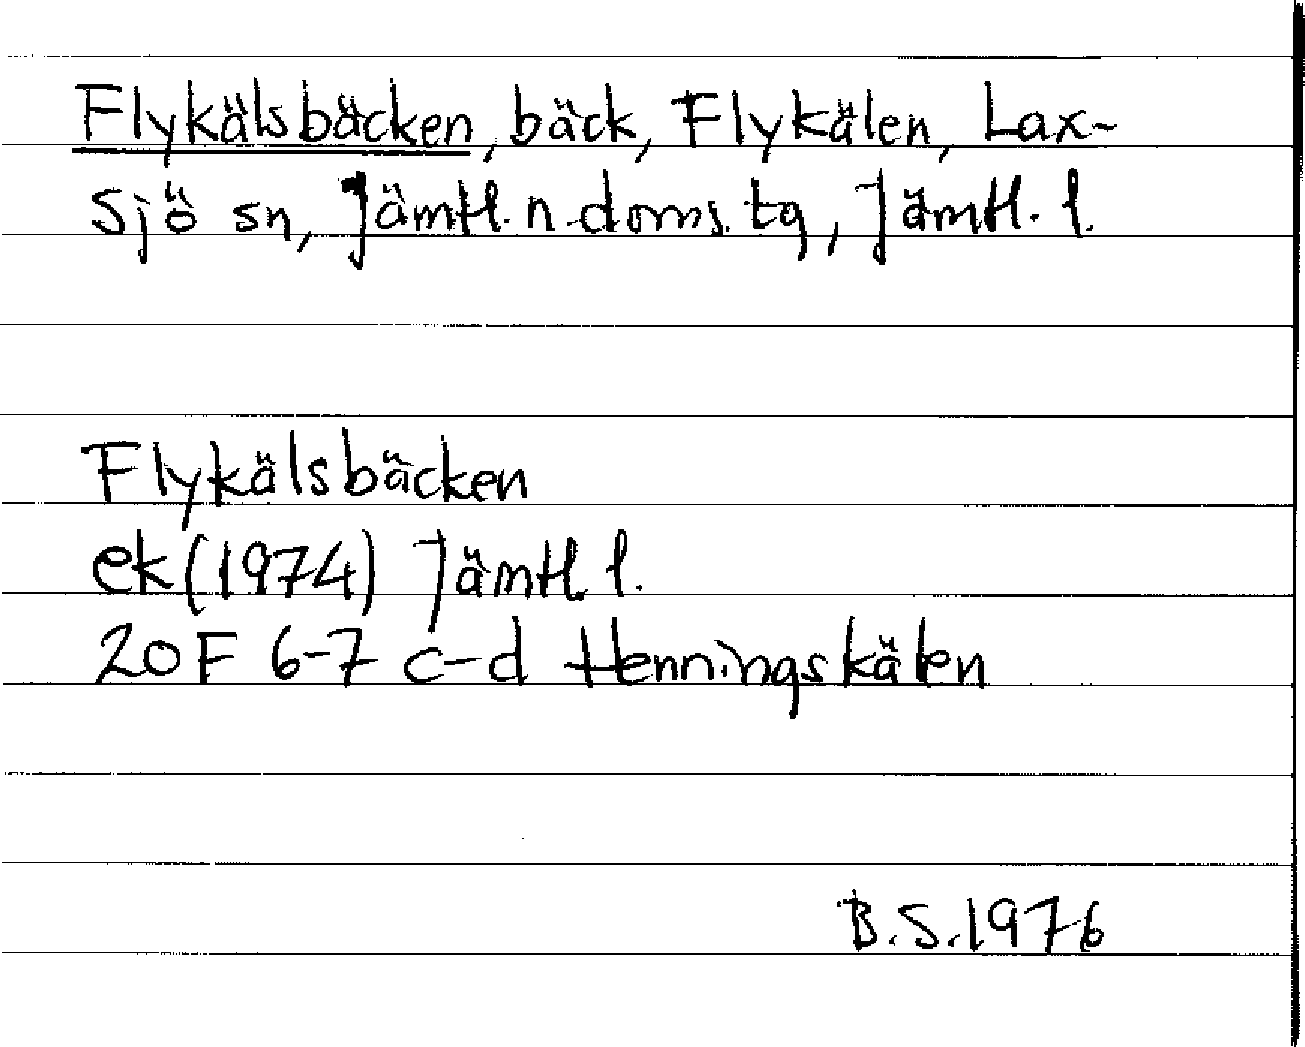 Flykälsbäcken, bäck, Flykälen, Lax-
sjö sn, Jämtl. n. doms. tg, Jämtl. l.
Flykälsbäcken
ek (1974) Jämtl. l.
20F 6-7 c-d Henningskälen
B.S. 1976